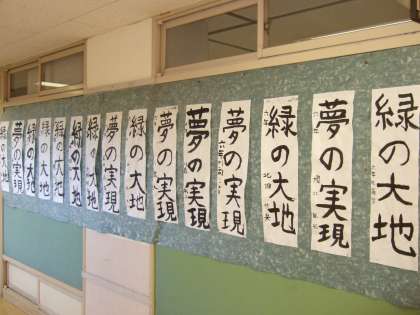 緑の大地
夢の実現
緑の大地
夢の実現
夢の実現
夢の実現
緑の大地
夢の実現
緑の大地
緑の大地
緑の大地
緑の大地
緑の大地
夢の実現
緑の大地